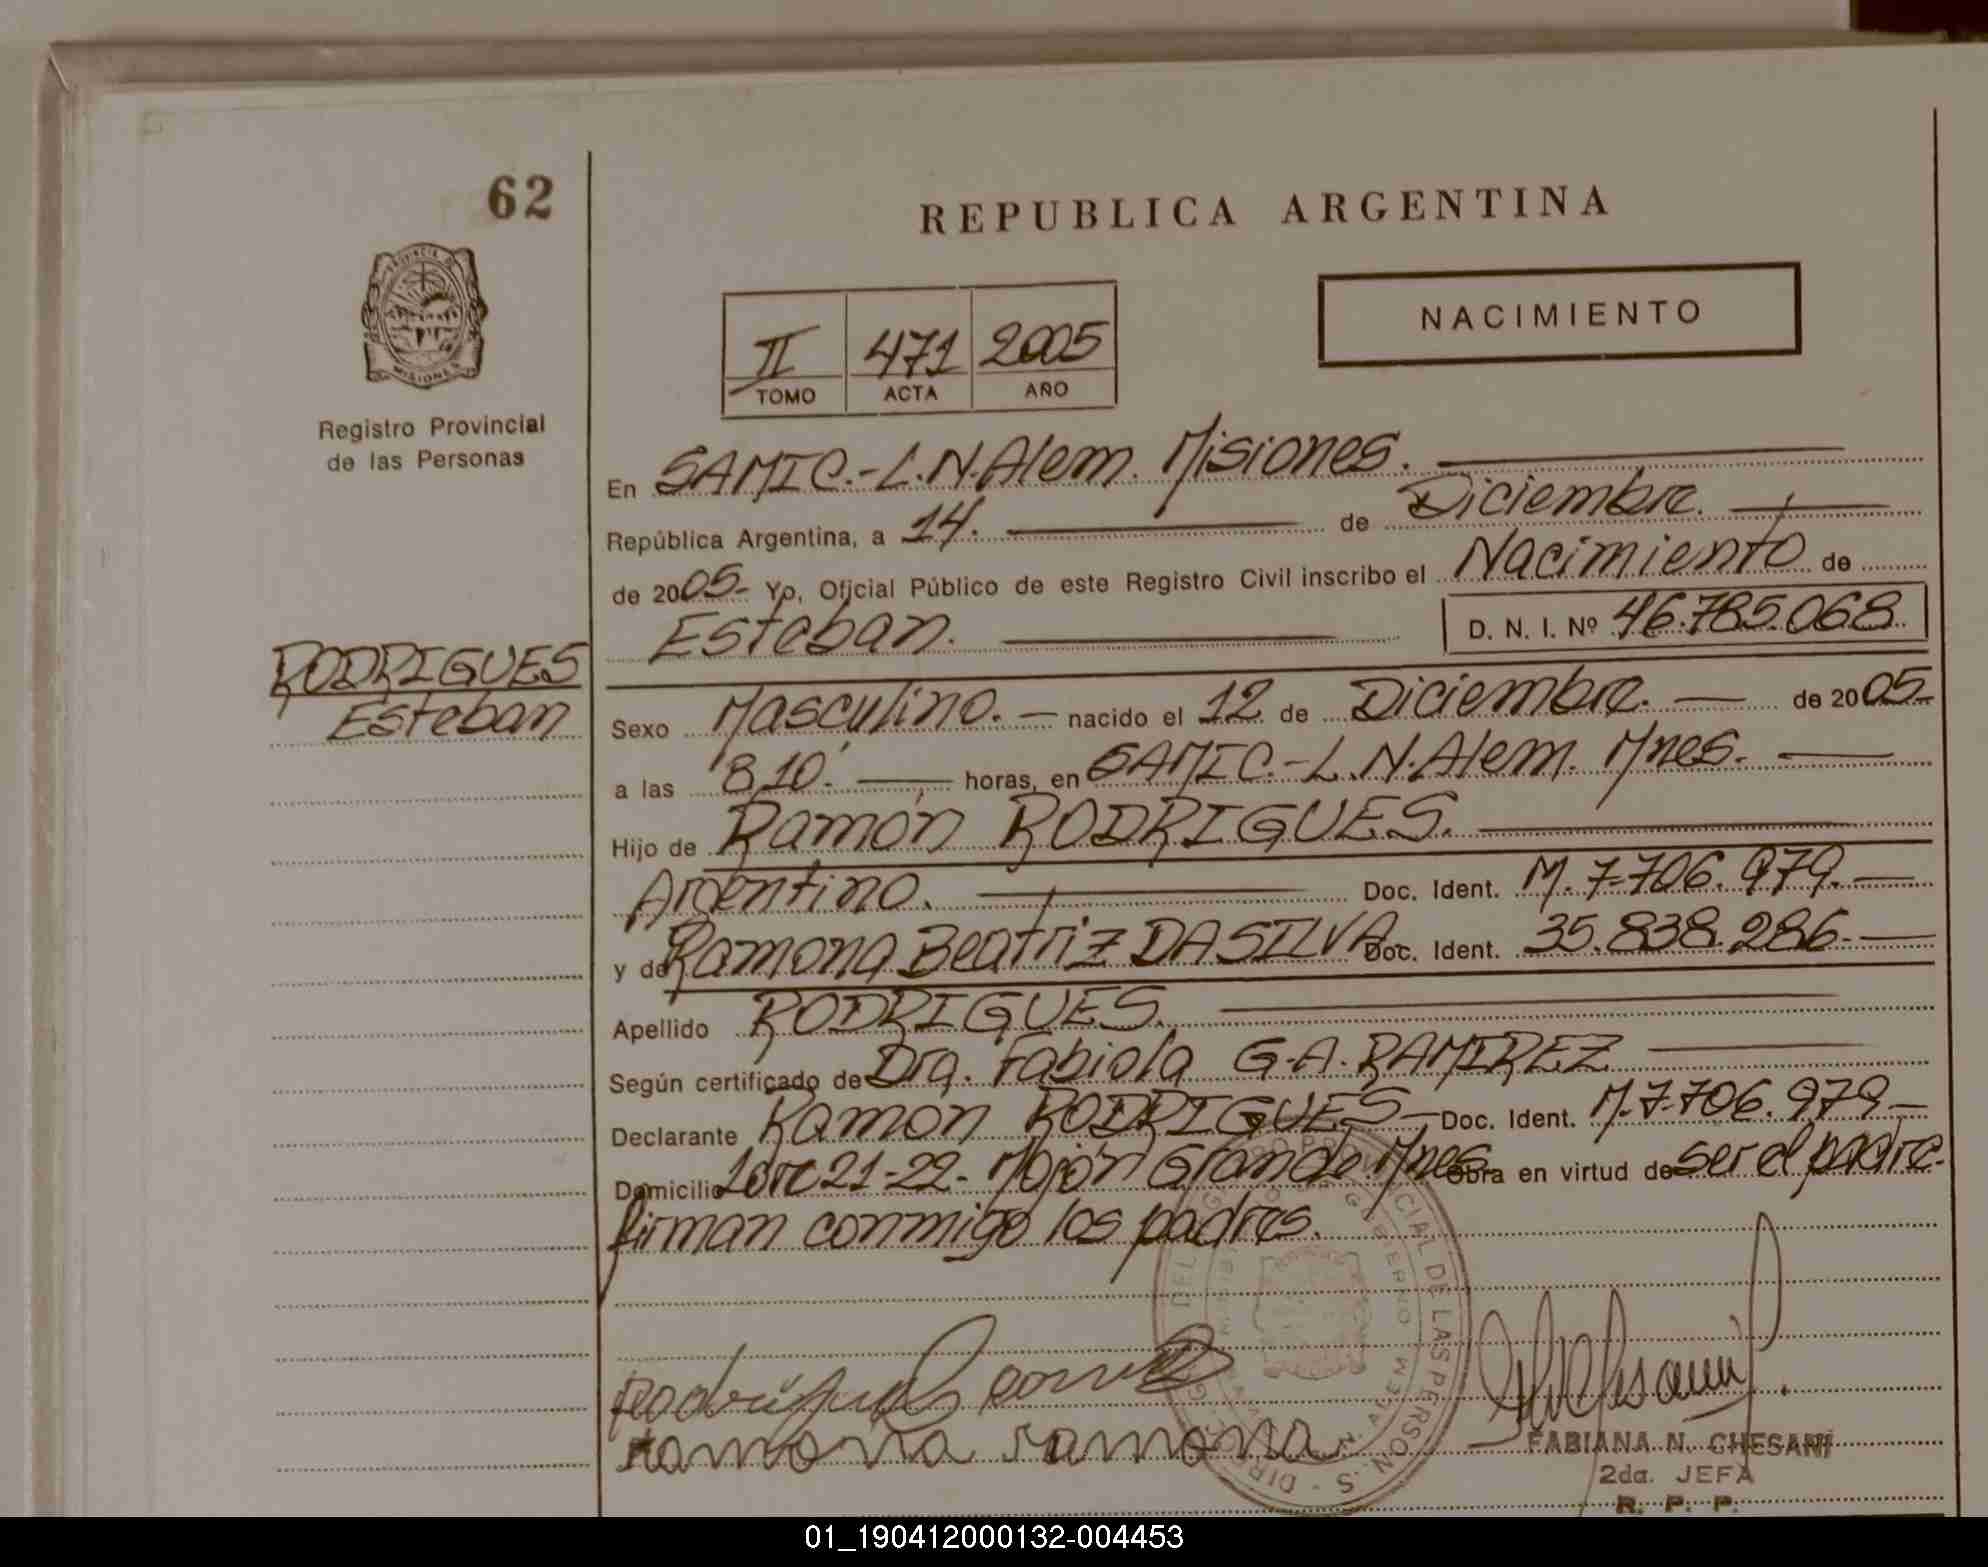 62
REPUBLICA ARGENTINA
PROVINCIA DE
MISIONES
Registro Provincial
de las Personas
II 471 2005
TOMO ACTA AÑO
NACIMIENTO
En SAMIC.-L.N.Alem. Misiones.
República Argentina, a 14. de Diciembre.
de 2005- Yo, Oficial Público de este Registro Civil inscribo el Nacimiento de
Esteban. D. N. I. Nº 46.785.068
RODRIGUES
Esteban
Sexo Masculino. nacido el 12 de Diciembre. de 2005-
a las 8,10'. horas, en SAMIC.-L.N.Alem. Mnes.
Hijo de Ramón RODRIGUES.
Argentino. Doc. Ident. M. 7.706.979.
y de Ramona Beatriz DA SILVA Doc. Ident. 35.838.286.
Apellido RODRIGUES.
Según certificado de Dra. Fabiola G.A. RAMIREZ
Declarante Ramon RODRIGUES Doc. Ident. M.7.706.979
Domicilio Lote 21-22- Mojón Grande Mnes Obra en virtud de ser el padre.
firman conmigo los padres.
Ramona
FABIANA N. CHESANI
2da. JEFA
R. P. P.
01_190412000132-004453